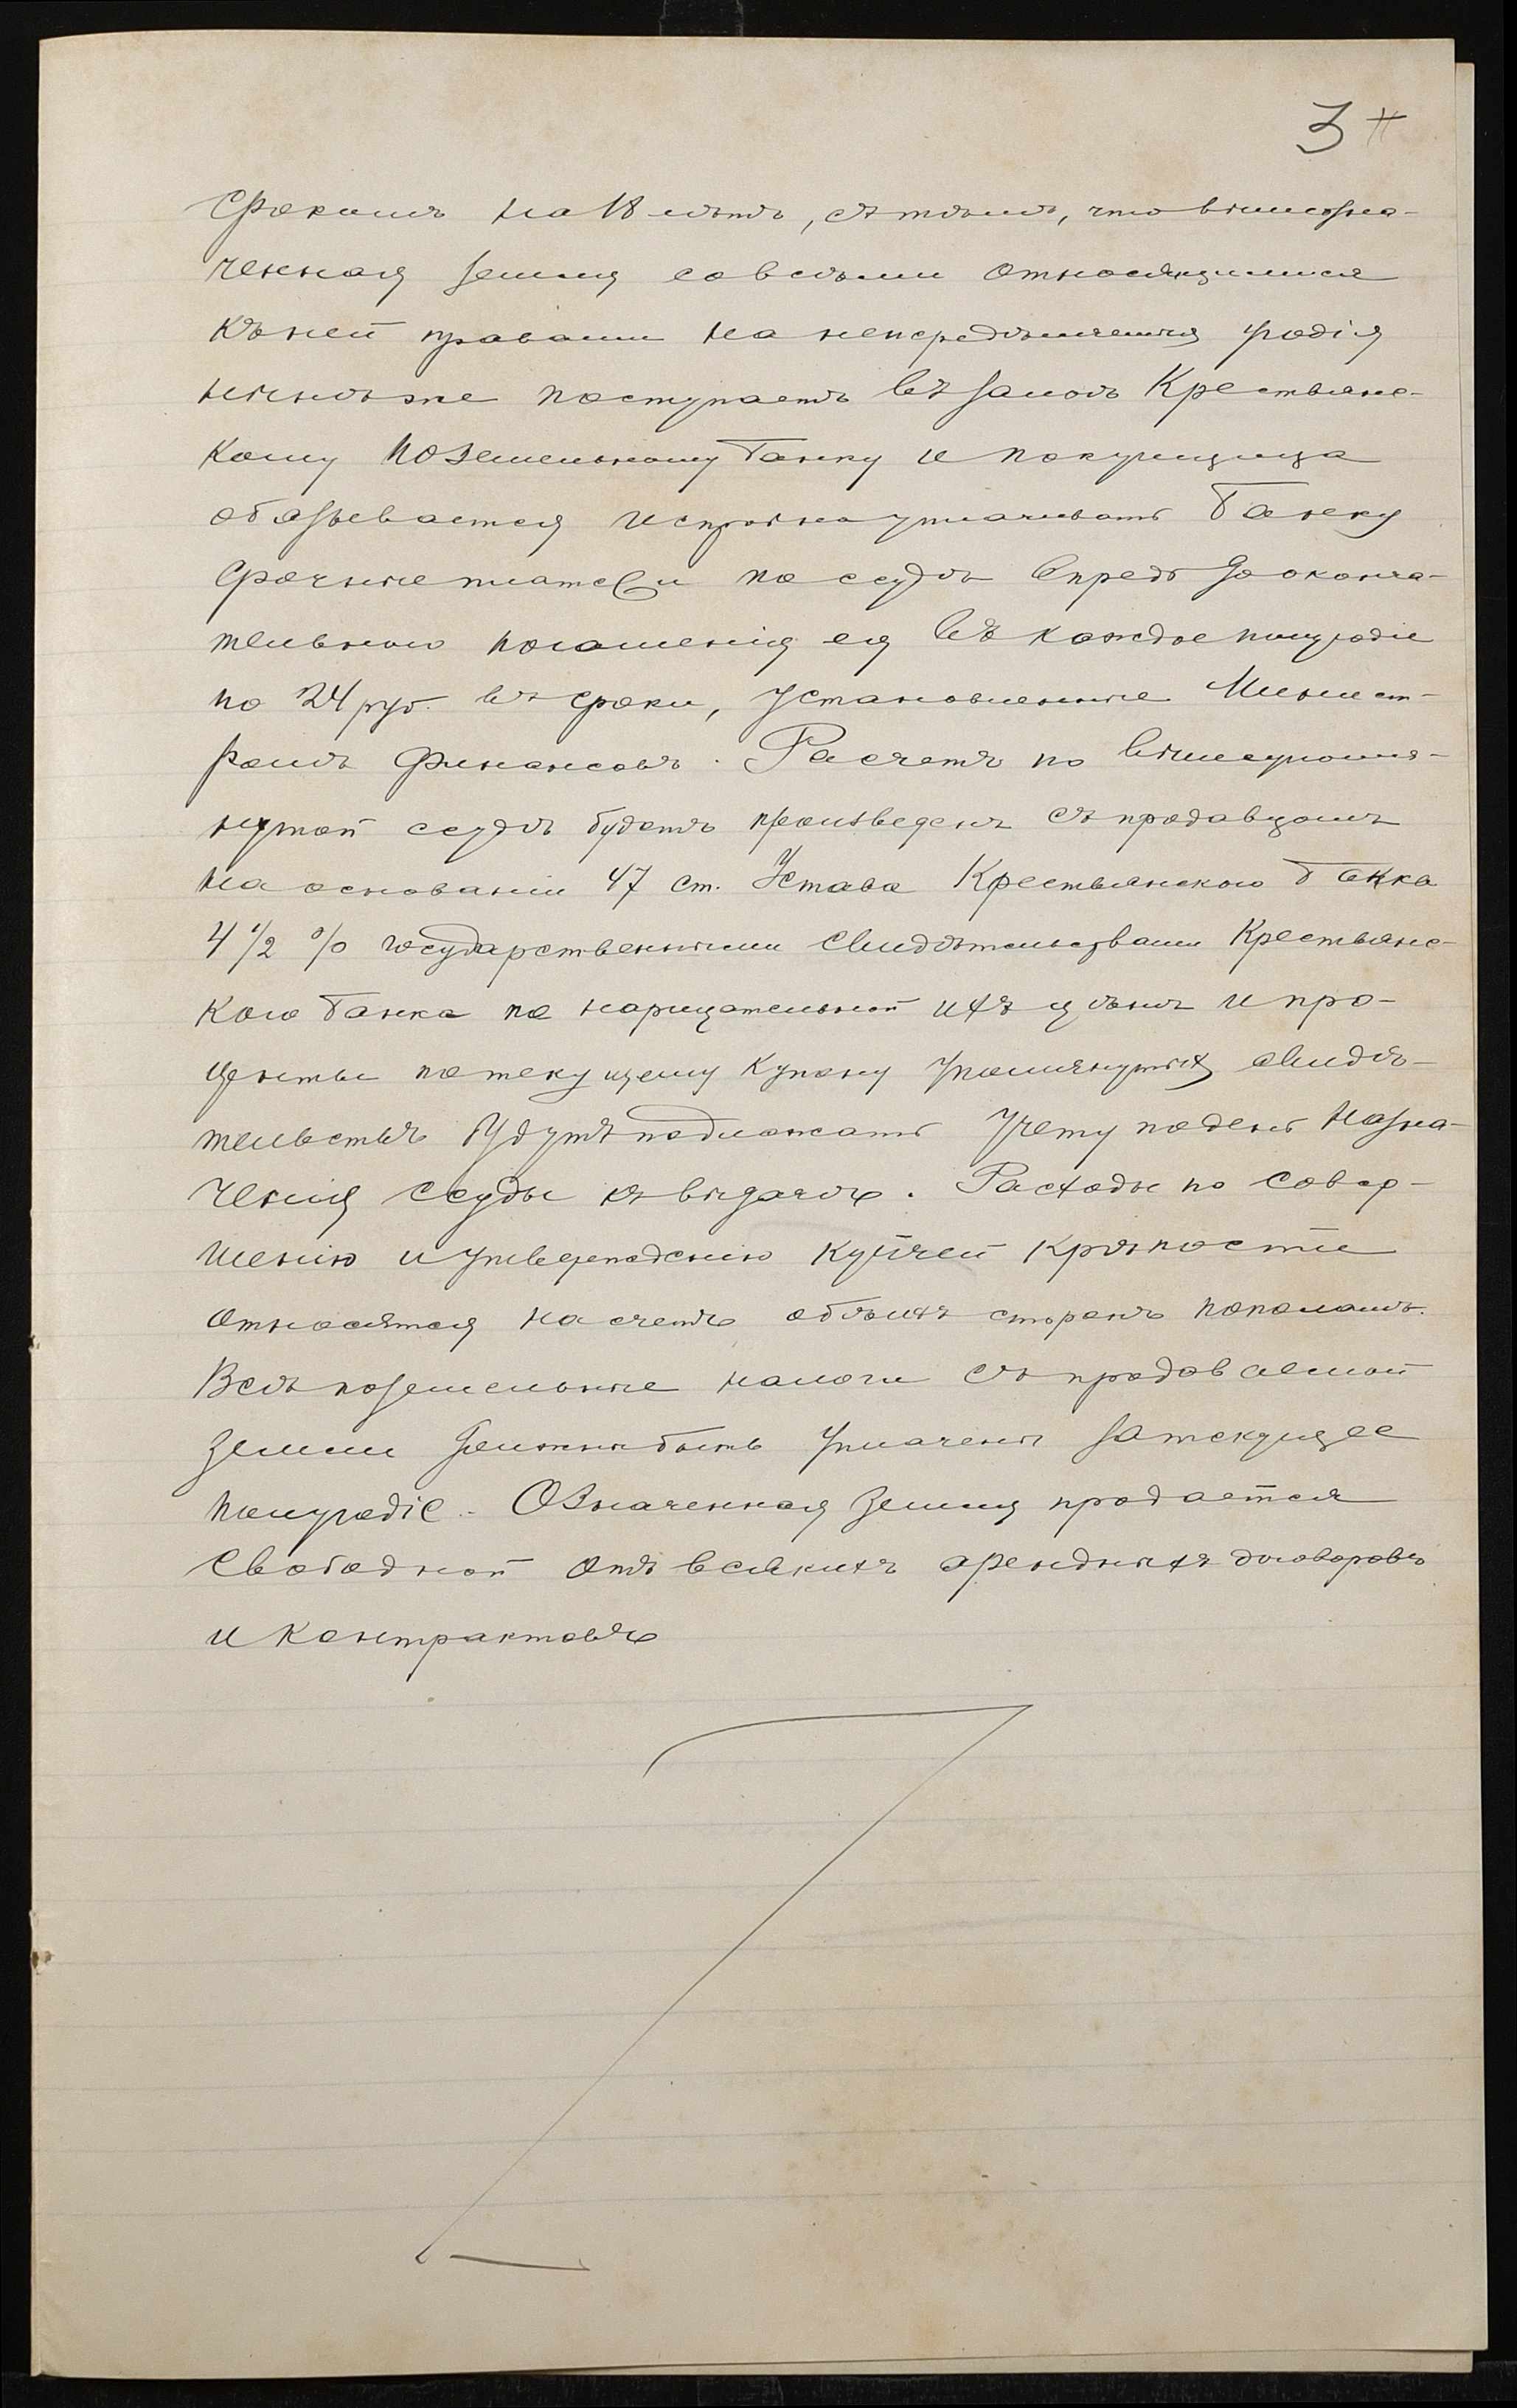 3
срокомъ на 18 лѣтъ, съ тѣмъ, что вышеозна-
ченная земля со всѣми относящимися
къ ней правами на
нынѣ же поступаетъ въ залогъ Крестьянс-
кому Поземельному Банку и покупщица
обязывается исправно уплачивать Банку
срочные платежи по ссудѣ впредь до оконча-
тельнаго погашенія ея въ каждое полугодіе
по 24 руб. въ сроки, установленные Минист-
ромъ Финансовъ. Расчетъ по вышеупомя-
нутой ссудѣ будетъ произведенъ съ продавцомъ
на основаніи 47 ст. Устава Крестьянскаго Банка
4 1/2 % государственными свидѣтельствами Крестьянс-
каго Банка по нарицательной ихъ цѣнѣ и про-
центы по текущему купону упомянутыхъ свидѣ-
тельствъ будутъ подлежать учету по день назна-
ченія ссуды къ выдачѣ. Расходы по совер-
шенію и утвержденію купчей крѣпости
относятся на счетъ обѣихъ сторонъ пополамъ.
Всѣ поземельные налоги съ продаваемой
земли должны быть уплачены за текущее
полугодіе. Означенная земля продается
свободной отъ всякихъ арендныхъ договоровъ
и контрактовъ